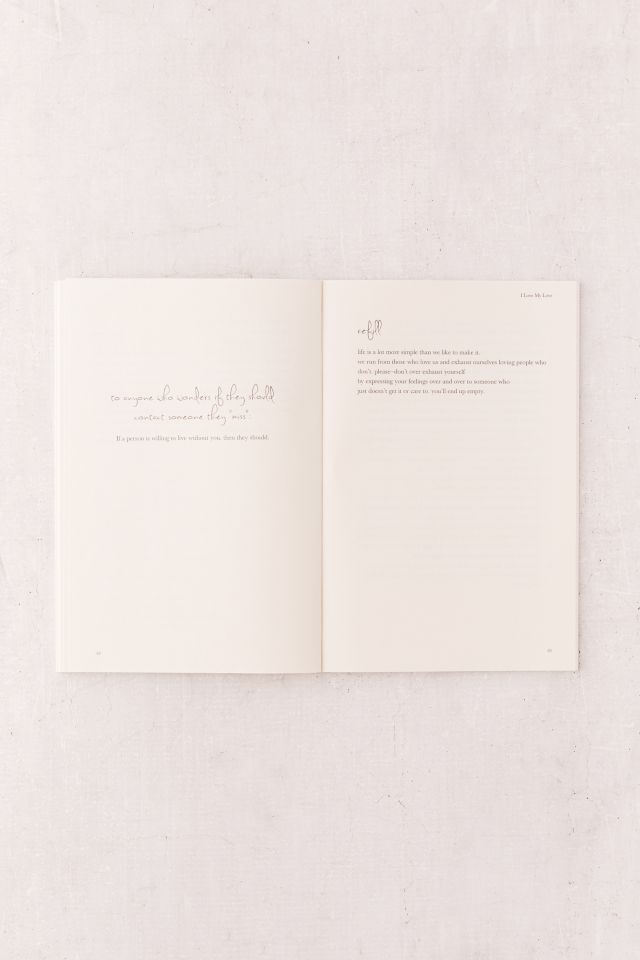 to anyone who wonders if they should
contact someone they "miss":
If a person is willing to live without you, then they should.
I Love My Love
refill
life is a lot more simple than we like to make it.
we run from those who love us and exhaust ourselves loving people who
don't. please–don't over exhaust yourself
by expressing your feelings over and over to someone who
just doesn't get it or care to. you'll end up empty.